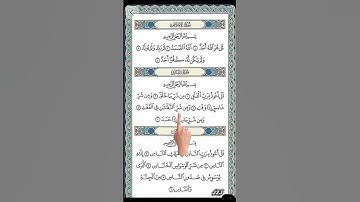 سُورَةُ الإخلاص
بِسْمِ اللَّهِ الرَّحْمَٰنِ الرَّحِيمِ
قُلْ هُوَ اللَّهُ أَحَدٌ ١ اللَّهُ الصَّمَدُ ٢ لَمْ يَلِدْ وَلَمْ يُولَدْ ٣
وَلَمْ يَكُن لَّهُ كُفُوًا أَحَدٌ ٤
سُورَةُ الفلق
بِسْمِ اللَّهِ الرَّحْمَٰنِ الرَّحِيمِ
قُلْ أَعُوذُ بِرَبِّ الْفَلَقِ ١ مِن شَرِّ مَا خَلَقَ ٢ وَمِن شَرِّ
غَاسِقٍ إِذَا وَقَبَ ٣ وَمِن شَرِّ النَّفَّاثَاتِ فِي الْعُقَدِ ٤
وَمِن شَرِّ حَاسِدٍ إِذَا حَسَدَ ٥
بِسْمِ اللَّهِ الرَّحْمَٰنِ الرَّحِيمِ
قُلْ أَعُوذُ بِرَبِّ النَّاسِ ١ مَلِكِ النَّاسِ ٢ إِلَٰهِ
النَّاسِ ٣ مِن شَرِّ الْوَسْوَاسِ الْخَنَّاسِ ٤ الَّذِي
يُوَسْوِسُ فِي صُدُورِ النَّاسِ ٥ مِنَ الْجِنَّةِ
وَالنَّاسِ ٦